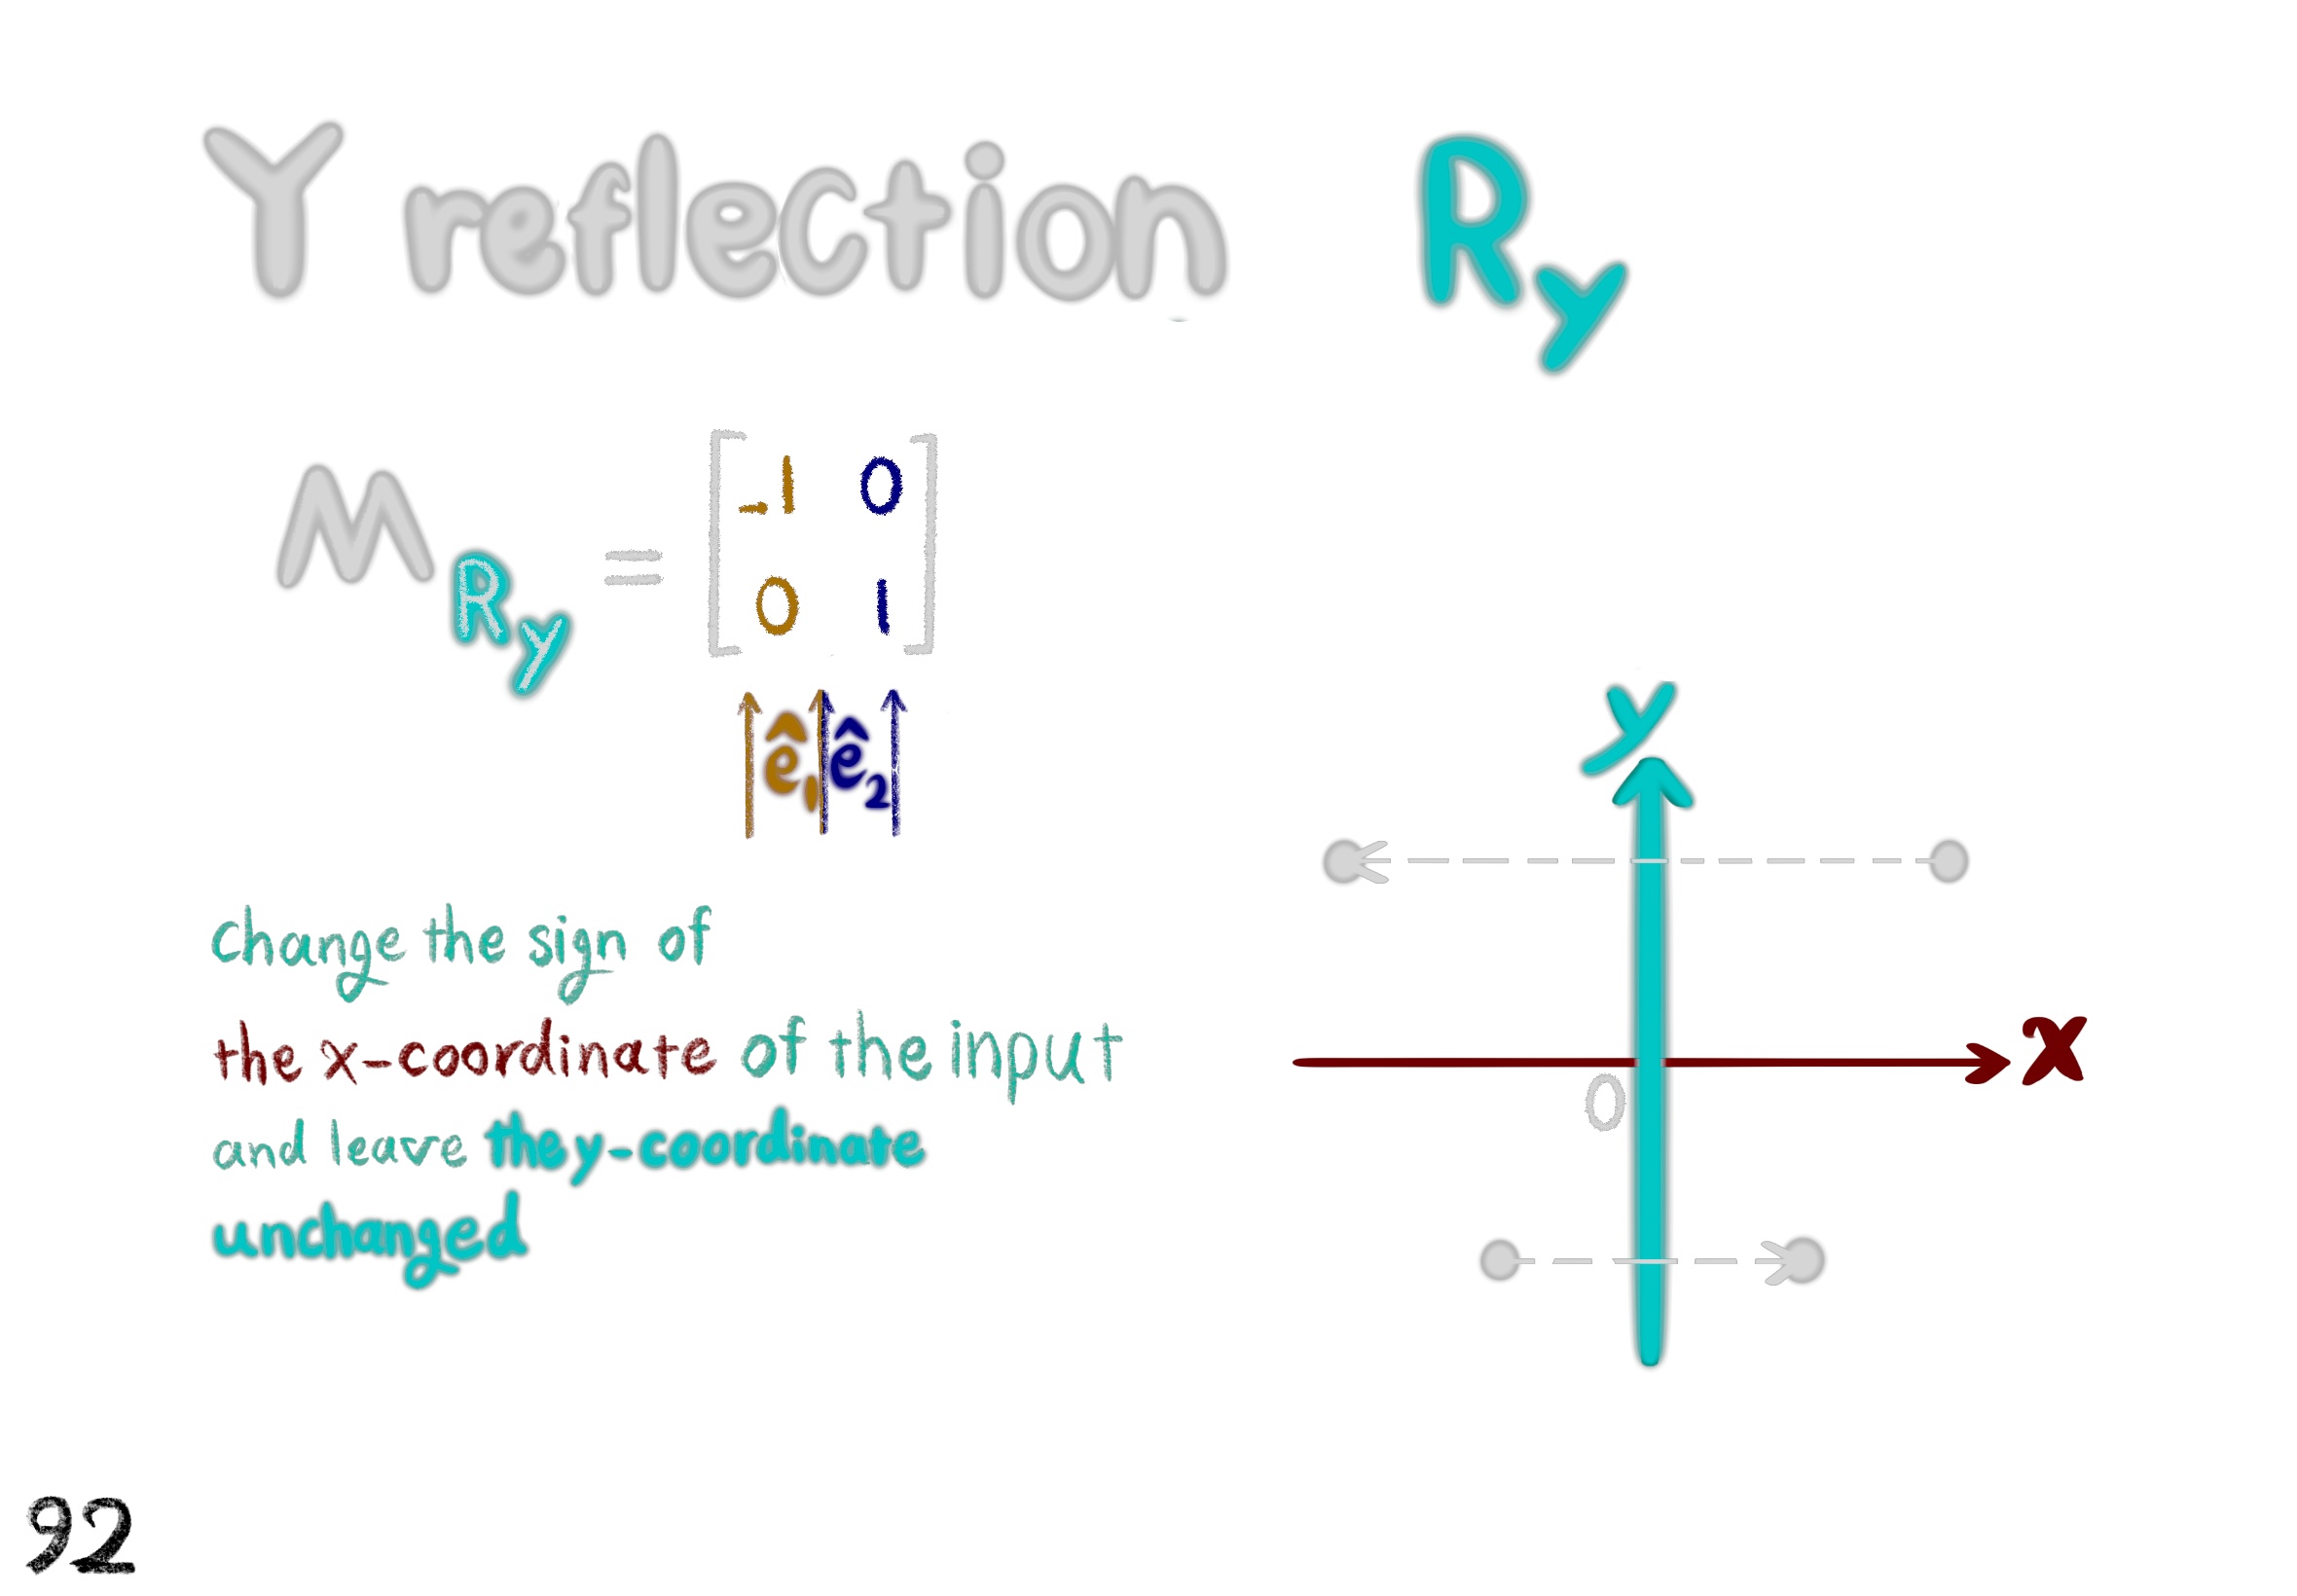 Y reflection R_y
M_{R_y} = [ -1 0
0 1 ]
ê₁ ê₂
change the sign of
the x-coordinate of the input
and leave the y-coordinate
unchanged
y
x
0
92